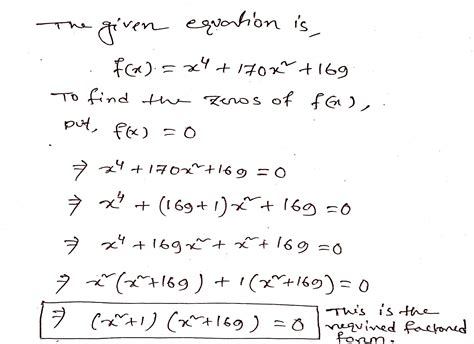 The given equation is,
f(x) = x⁴ + 170x² + 169
To find the zeros of f(x),
put, f(x) = 0
⇒ x⁴ + 170x² + 169 = 0
⇒ x⁴ + (169+1)x² + 169 = 0
⇒ x⁴ + 169x² + x² + 169 = 0
⇒ x²(x²+169) + 1(x²+169) = 0
⇒ (x²+1) (x²+169) = 0 This is the
required factored
form.